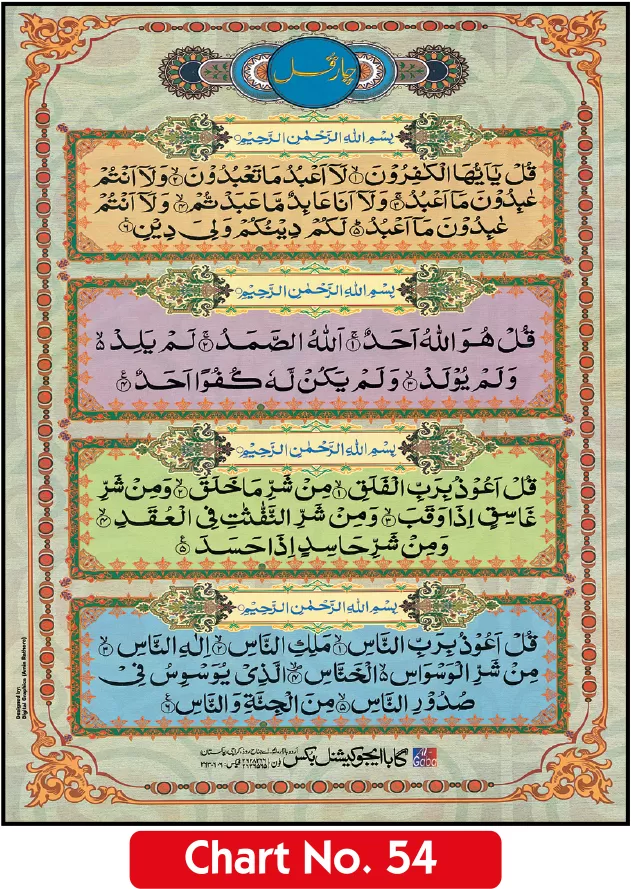 چار قل
بِسْمِ اللهِ الرَّحْمٰنِ الرَّحِيْمِ
قُلْ يٰۤاَيُّهَا الْكٰفِرُوْنَ ۱ لَاۤ اَعْبُدُ مَا تَعْبُدُوْنَ ۲ وَلَاۤ اَنْتُمْ
عٰبِدُوْنَ مَاۤ اَعْبُدُ ۳ وَلَاۤ اَنَا عَابِدٌ مَّا عَبَدْتُّمْ ۴ وَلَاۤ اَنْتُمْ
عٰبِدُوْنَ مَاۤ اَعْبُدُ ۵ لَكُمْ دِيْنُكُمْ وَلِيَ دِيْنِ ۶
بِسْمِ اللهِ الرَّحْمٰنِ الرَّحِيْمِ
قُلْ هُوَ اللهُ اَحَدٌ ۱ اَللهُ الصَّمَدُ ۲ لَمْ يَلِدْ ۙ
وَلَمْ يُوْلَدْ ۳ وَلَمْ يَكُنْ لَّهٗ كُفُوًا اَحَدٌ ۴
بِسْمِ اللهِ الرَّحْمٰنِ الرَّحِيْمِ
قُلْ اَعُوْذُ بِرَبِّ الْفَلَقِ ۱ مِنْ شَرِّ مَا خَلَقَ ۲ وَمِنْ شَرِّ
غَاسِقٍ اِذَا وَقَبَ ۳ وَمِنْ شَرِّ النَّفّٰثٰتِ فِي الْعُقَدِ ۴
وَمِنْ شَرِّ حَاسِدٍ اِذَا حَسَدَ ۵
بِسْمِ اللهِ الرَّحْمٰنِ الرَّحِيْمِ
قُلْ اَعُوْذُ بِرَبِّ النَّاسِ ۱ مَلِكِ النَّاسِ ۲ اِلٰهِ النَّاسِ ۳
مِنْ شَرِّ الْوَسْوَاسِ ۙ الْخَنَّاسِ ۴ الَّذِيْ يُوَسْوِسُ فِيْ
صُدُوْرِ النَّاسِ ۵ مِنَ الْجِنَّةِ وَالنَّاسِ ۶
Designed by:
Digital Graphics (Amin Rathore)
گابا ایجوکیشنل بکس
Gaba
Chart No. 54